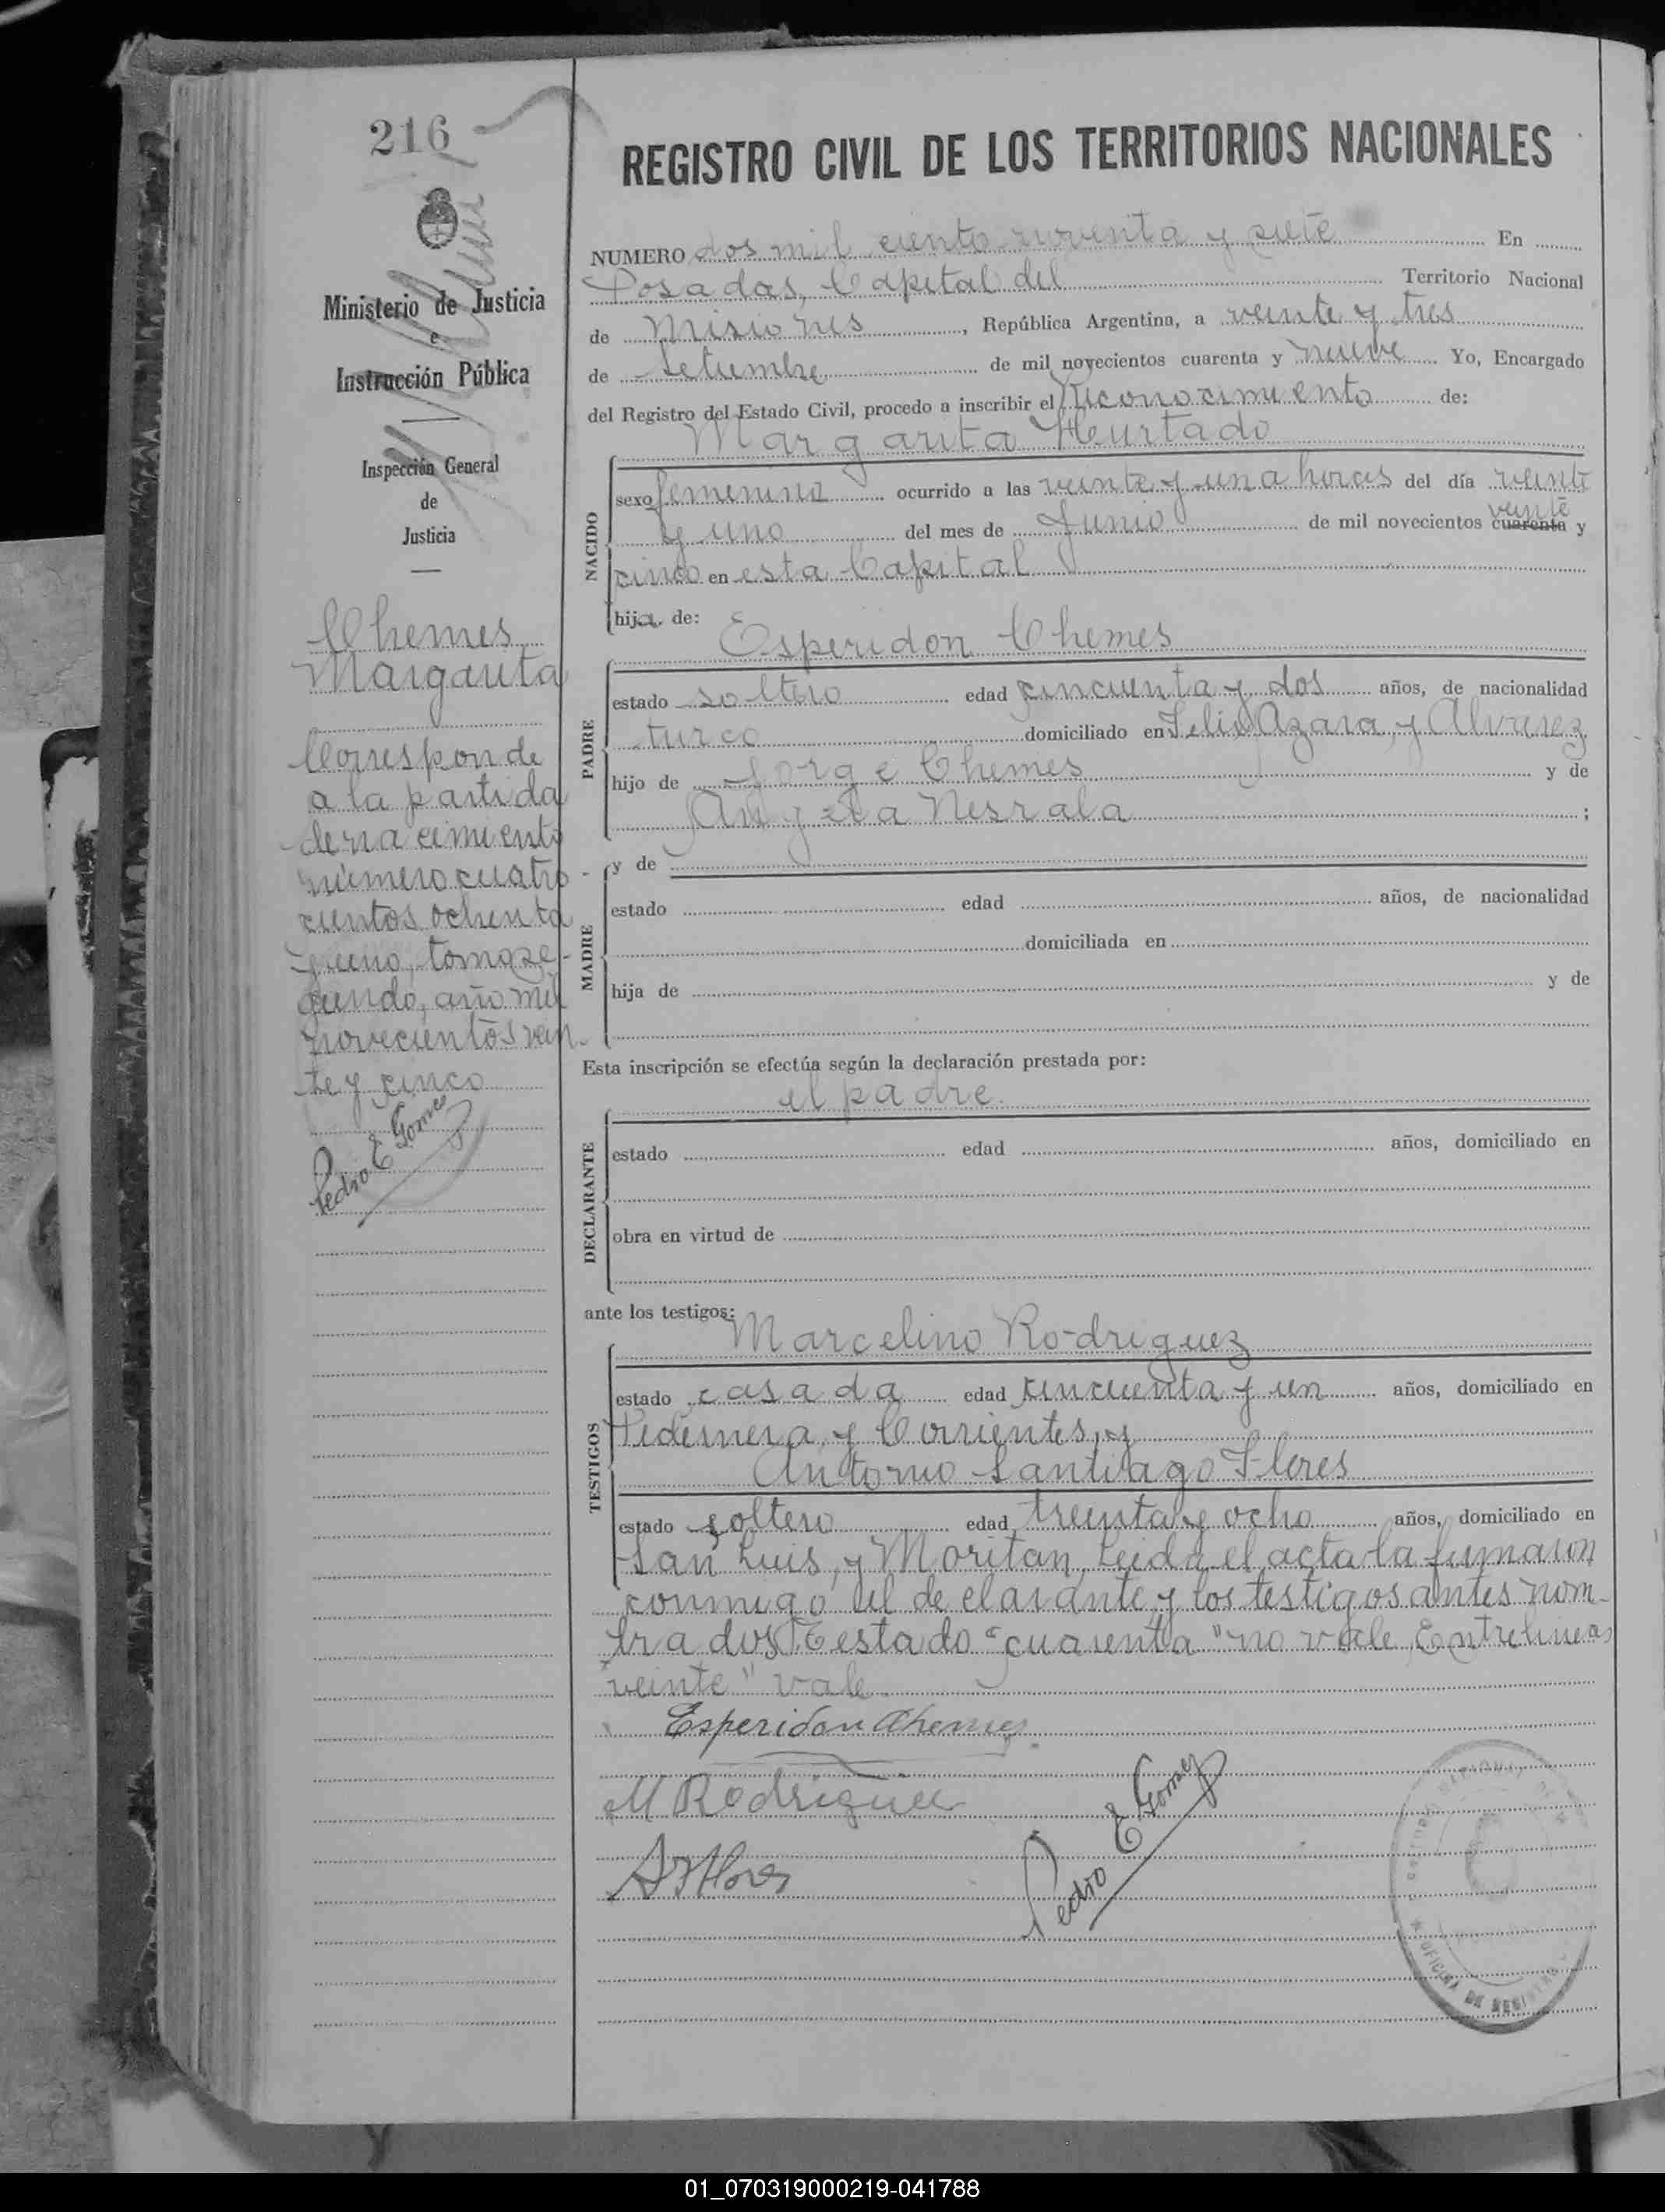 216
Ministerio de Justicia
e
Instrucción Pública
Inspección General
de
Justicia
Chemes
Margarita
Corresponde
a la partida
de nacimiento
número cuatro-
cientos ochenta
y uno, tomo se-
gundo, año mil
novecientos vein-
te y cinco
Pedro E Gomez
REGISTRO CIVIL DE LOS TERRITORIOS NACIONALES
NUMERO dos mil ciento noventa y siete En
Posadas, Capital del Territorio Nacional
de Misiones, República Argentina, a veinte y tres
de Setiembre de mil novecientos cuarenta y nueve Yo, Encargado
del Registro del Estado Civil, procedo a inscribir el Reconocimiento de:
Margarita Hurtado
NACIDO
sexo femenino ocurrido a las veinte y una horas del día veinte
veinte
y uno del mes de Junio de mil novecientos cuarenta y
cinco en esta Capital
hija de:
Esperidon Chemes
PADRE
estado soltero edad cincuenta y dos años, de nacionalidad
turco domiciliado en Felix Azara y Alvarez
hijo de Jorge Chemes y de
Angela Nesrala ;
MADRE
y de
estado edad años, de nacionalidad
domiciliada en
hija de y de
Esta inscripción se efectúa según la declaración prestada por:
el padre.
DECLARANTE
estado edad años, domiciliado en
obra en virtud de
ante los testigos:
Marcelino Rodriguez
TESTIGOS
estado casada edad cincuenta y un años, domiciliado en
Pedernera y Corrientes, y
Antonio Santiago Flores
estado soltero edad treinta y ocho años, domiciliado en
San Luis, y Moritan, Leida el acta la firmaron
conmigo el declarante y los testigos antes nom-
brados, Testado "cuarenta" no vale, Entrelineas
"veinte" vale.
Esperidon Chemes
M Rodriguez
A S Flores
Pedro E Gomez
OFICINA DE REGISTRO
01_070319000219-041788